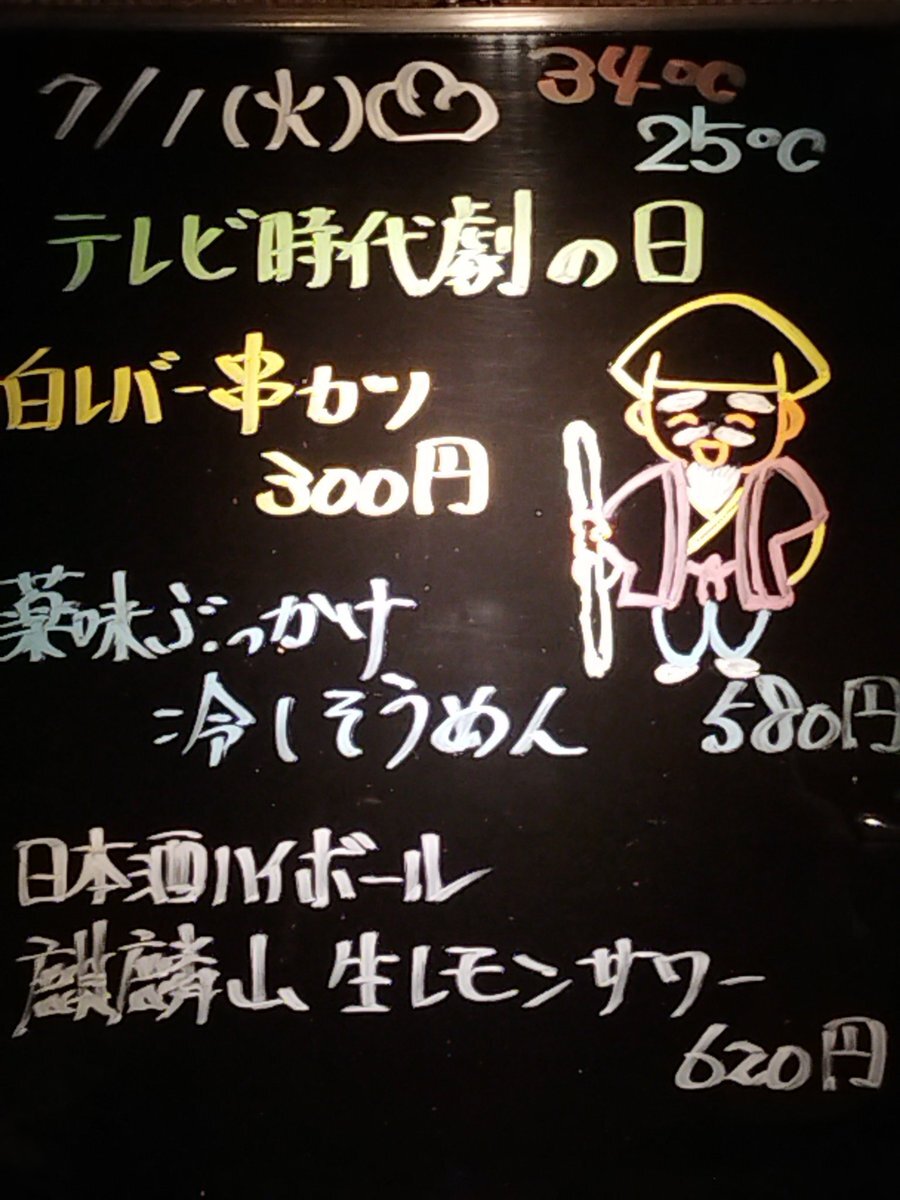 7/1(火) 34℃
25℃
テレビ時代劇の日
白レバー串カツ
300円
薬味ぶっかけ
冷しそうめん 580円
日本酒ハイボール
麒麟山 生レモンサワー
620円